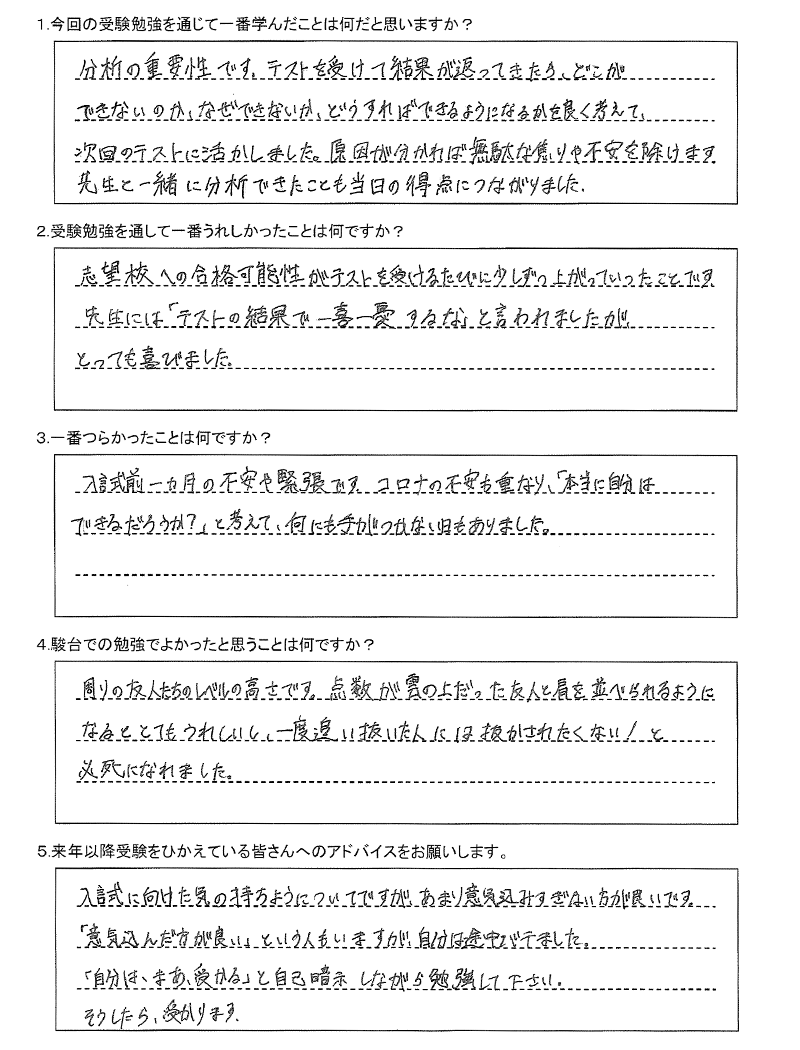 1.今回の受験勉強を通じて一番学んだことは何だと思いますか?
分析の重要性です。テストを受けて結果が返ってきたら、どこが
できないのか、なぜできないか、どうすればできるようになるかを良く考えて、
次回のテストに活かしました。原因が分かれば無駄な焦りや不安を除けます
先生と一緒に分析できたことも当日の得点につながりました。
2.受験勉強を通して一番うれしかったことは何ですか?
志望校への合格可能性がテストを受けるたびに少しずつ上がっていったことです
先生には「テストの結果で一喜一憂するな」と言われましたが、
とっても喜びました。
3.一番つらかったことは何ですか?
入試前一カ月の不安や緊張です。コロナの不安も重なり、「本当に自分は
できるだろうか?」と考えて、何にも手がつかない日もありました。
4.駿台での勉強でよかったと思うことは何ですか?
周りの友人たちのレベルの高さです。点数が雲の上だった友人と肩を並べられるように
なるととてもうれしいし、一度追い抜いた人には抜かされたくない!と
必死になれました。
5.来年以降受験をひかえている皆さんへのアドバイスをお願いします。
入試に向けた気の持ちようについてですが、あまり意気込みすぎない方が良いです。
「意気込んだ方が良い」という人もいますが、自分は途中バテました。
「自分は、まあ、受かる」と自己暗示しながら勉強して下さい。
そうしたら、受かります。